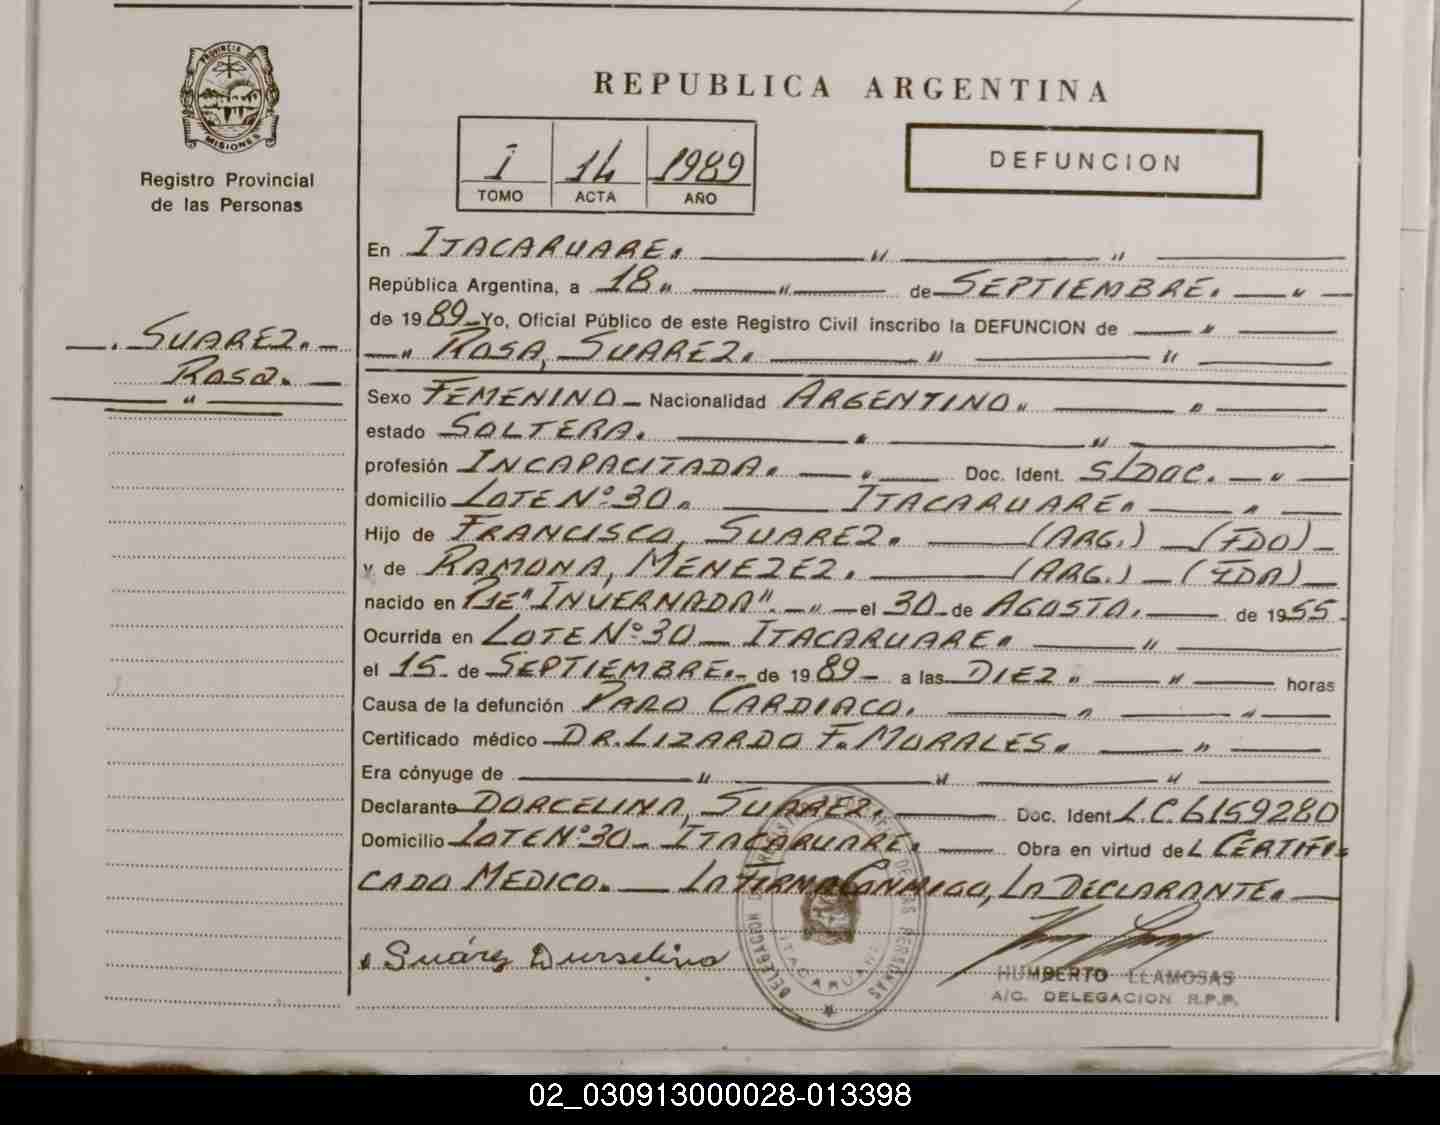 PROVINCIA DE
MISIONES
Registro Provincial
de las Personas
REPUBLICA ARGENTINA
I 14 1989
TOMO ACTA AÑO
DEFUNCION
SUAREZ.
Rosa.
En ITACARUARE.
República Argentina, a 18 de SEPTIEMBRE.
de 1989 Yo, Oficial Público de este Registro Civil inscribo la DEFUNCION de
ROSA, SUAREZ.
Sexo FEMENINO Nacionalidad ARGENTINO.
estado SOLTERA.
profesión INCAPACITADA. Doc. Ident. S/DOC.
domicilio LOTE Nº 30. ITACARUARE.
Hijo de FRANCISCO, SUAREZ. (ARG.) (FDO)
y de RAMONA, MENEZEZ. (ARG.) (FDA)
nacido en "INVERNADA". el 30 de AGOSTO. de 1955
Ocurrida en LOTE Nº 30 ITACARUARE.
el 15 de SEPTIEMBRE. de 1989 a las DIEZ horas
Causa de la defunción PARO CARDIACO.
Certificado médico DR. LIZARDO F. MORALES.
Era cónyuge de
Declarante DORCELINA, SUAREZ. Doc. Ident L.C. 6159280
Domicilio LOTE Nº 30 ITACARUARE. Obra en virtud del CERTIFI
CADO MEDICO. LA FIRMA CONMIGO, LA DECLARANTE.
Suárez Durselina
DE LAS PERSONAS
DELEGACION
ITACARUARE
HUMBERTO LLAMOSAS
A/C. DELEGACION R.P.P.
02_030913000028-013398